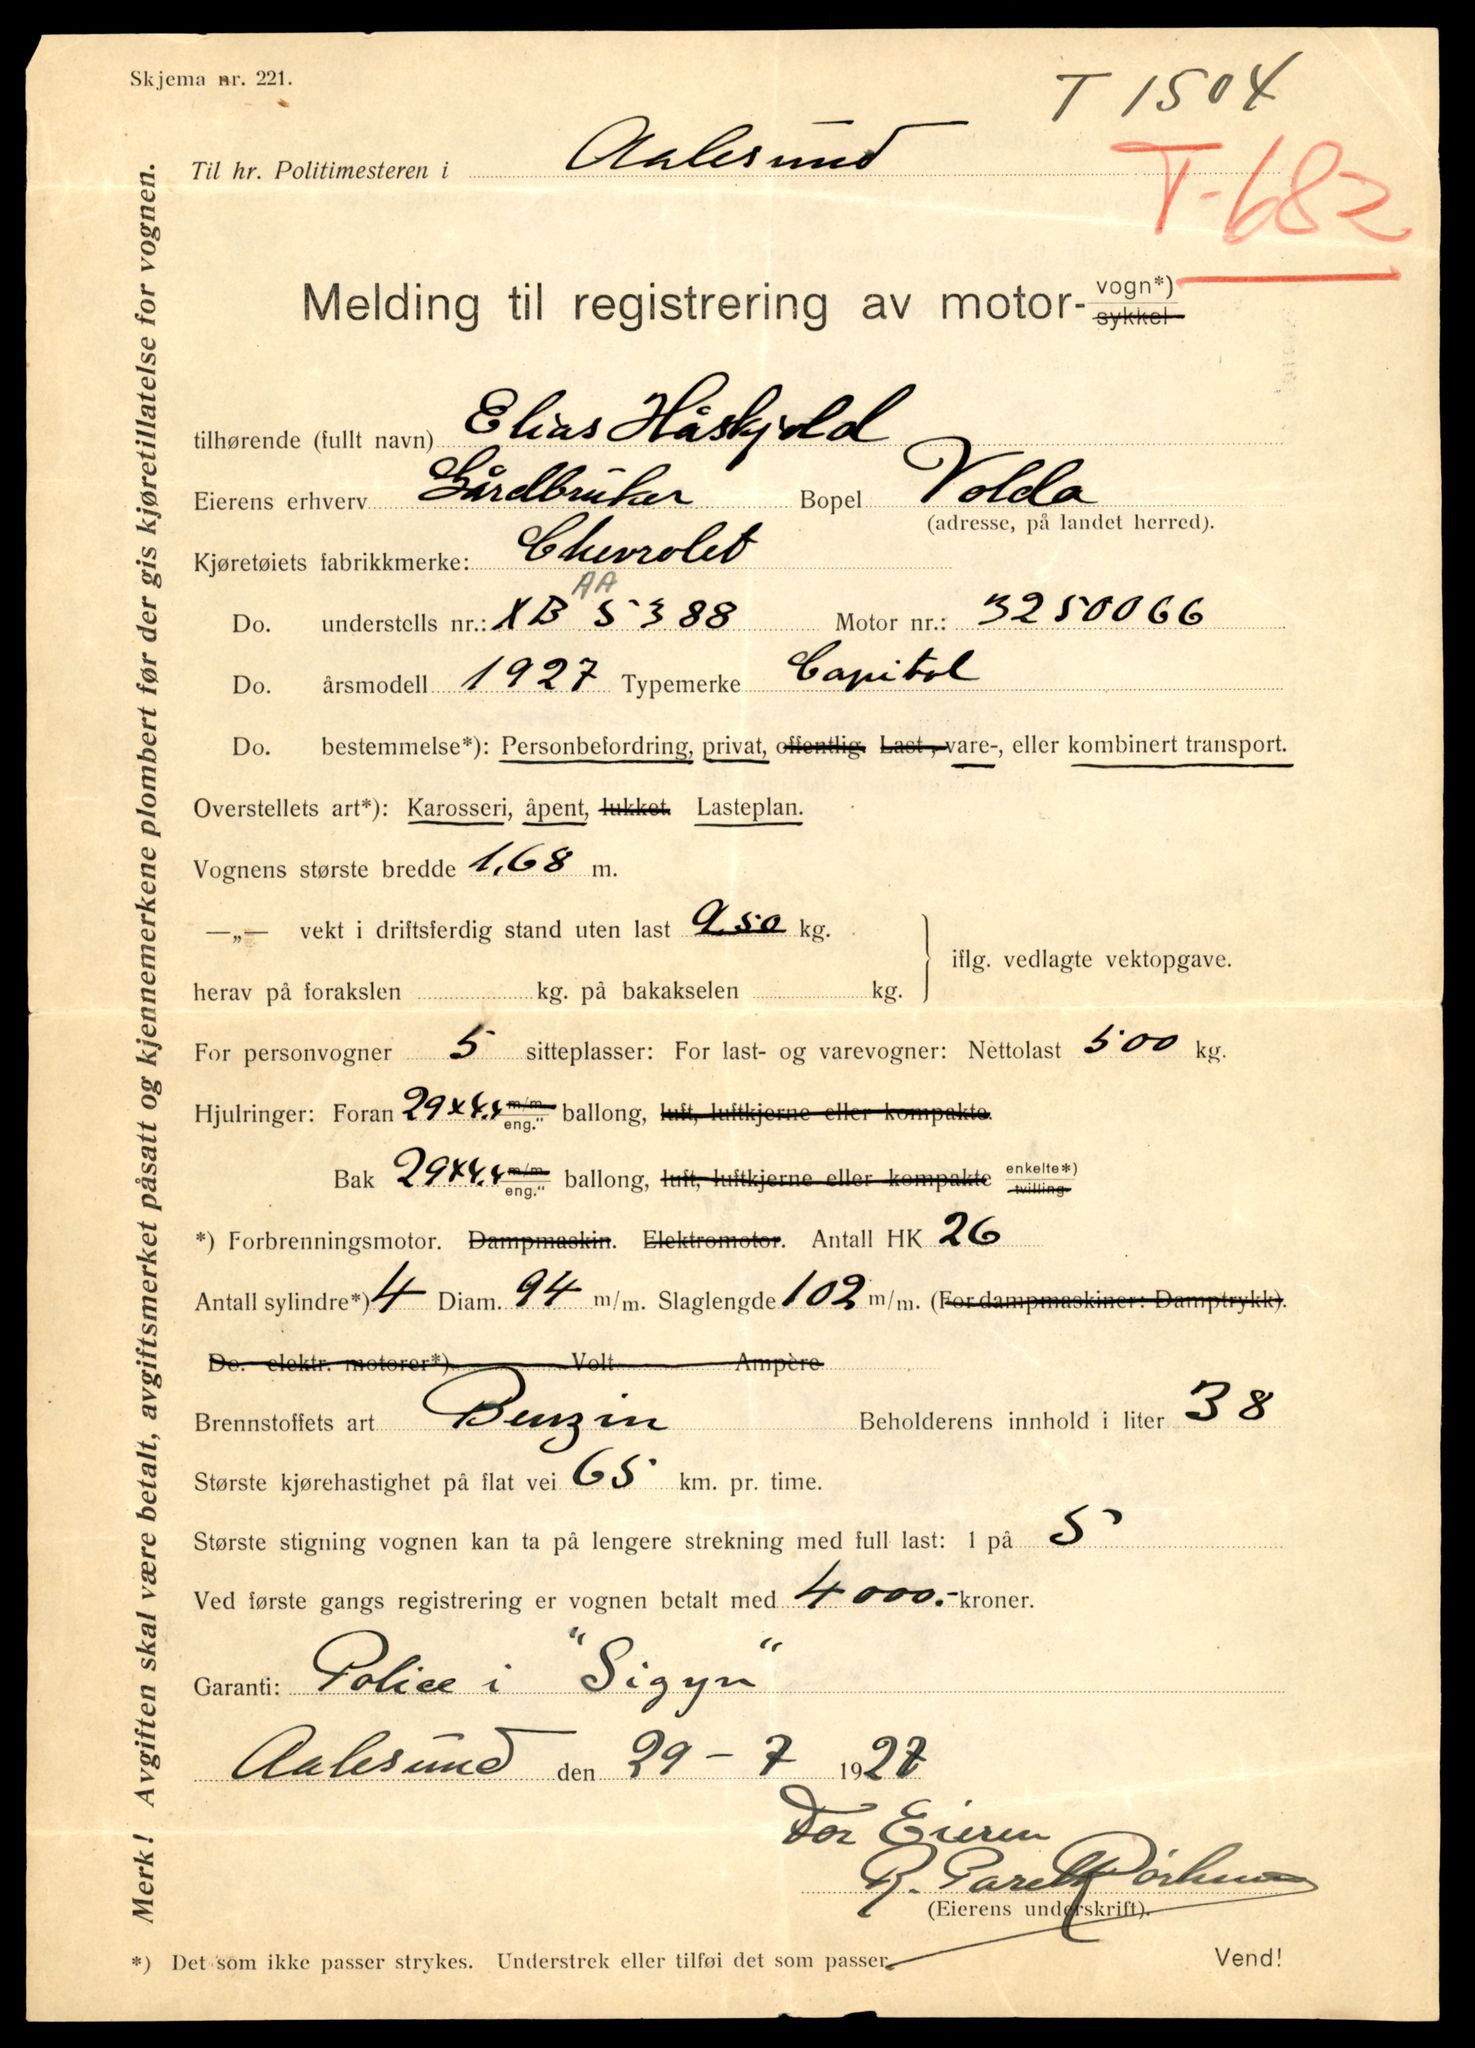 Skjema nr. 221.
T 1504
T-682
Til hr. Politimesteren i Aalesund
Melding til registrering av motor- vogn*)
sykkel
tilhørende (fullt navn) Elias Håskjold
Eierens erhverv Gårdbruker Bopel Volda
(adresse, på landet herred).
Kjøretøiets fabrikkmerke: Chevrolet
AA
Do. understells nr.: XB 5388 Motor nr.: 3250066
Do. årsmodell 1927 Typemerke Capitol
Do. bestemmelse*): Personbefordring, privat, offentlig. Last-, vare-, eller kombinert transport.
Overstellets art*): Karosseri, åpent, lukket. Lasteplan.
Vognens største bredde 1,68 m.
—„— vekt i driftsferdig stand uten last 950 kg.
iflg. vedlagte vektopgave.
herav på forakslen kg. på bakakselen kg.
For personvogner 5 sitteplasser: For last- og varevogner: Nettolast 500 kg.
Hjulringer: Foran 29x4.4 m/m eng." ballong, luft, luftkjerne eller kompakte.
Bak 29x4.4 m/m eng." ballong, luft, luftkjerne eller kompakte enkelte*) tvilling
*) Forbrenningsmotor. Dampmaskin. Elektromotor. Antall HK 26
Antall sylindre*) 4 Diam. 94 m/m. Slaglengde 102 m/m. (For dampmaskiner: Damptrykk).
Do. elektr. motorer*) Volt Ampère
Brennstoffets art Benzin Beholderens innhold i liter 38
Største kjørehastighet på flat vei 65 km. pr. time.
Største stigning vognen kan ta på lengere strekning med full last: 1 på 5
Ved første gangs registrering er vognen betalt med 4000.- kroner.
Garanti: Police i "Sigyn"
Aalesund den 29-7 1927
For Eieren
R.
(Eierens underskrift).
*) Det som ikke passer strykes. Understrek eller tilføi det som passer. Vend!
Merk! Avgiften skal være betalt, avgiftsmerket påsatt og kjennemerkene plombert før der gis kjøretillatelse for vognen.